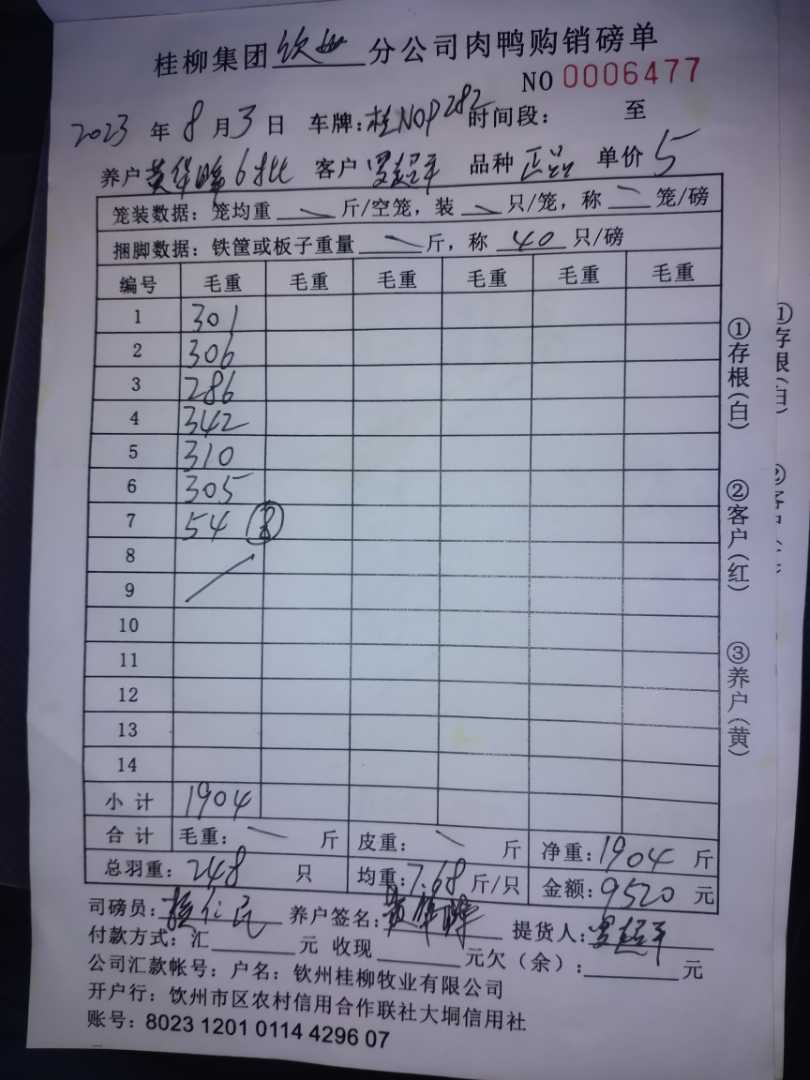 桂柳集团钦州分公司肉鸭购销磅单
NO 0006477
2023年8月3日 车牌:桂N0P282 时间段: 至
养户黄华晦6批 客户罗超平 品种正品 单价5
笼装数据:笼均重 斤/空笼,装 只/笼,称 笼/磅
捆脚数据:铁筐或板子重量 斤,称 40 只/磅
编号 毛重 毛重 毛重 毛重 毛重 毛重
1 301
2 306
3 286
4 342
5 310
6 305
7 54 (8)
8
9
10
11
12
13
14
小计 1904
合计 毛重: 斤 皮重: 斤 净重:1904 斤
总羽重:248 只 均重:7.68 斤/只 金额:9520 元
司磅员: 养户签名: 提货人:罗超平
付款方式:汇 元 收现 元欠(余): 元
公司汇款帐号:户名:钦州桂柳牧业有限公司
开户行:钦州市区农村信用合作联社大垌信用社
账号:8023 1201 0114 4296 07
①存根(白)
②客户(红)
③养户(黄)
①存根(白)